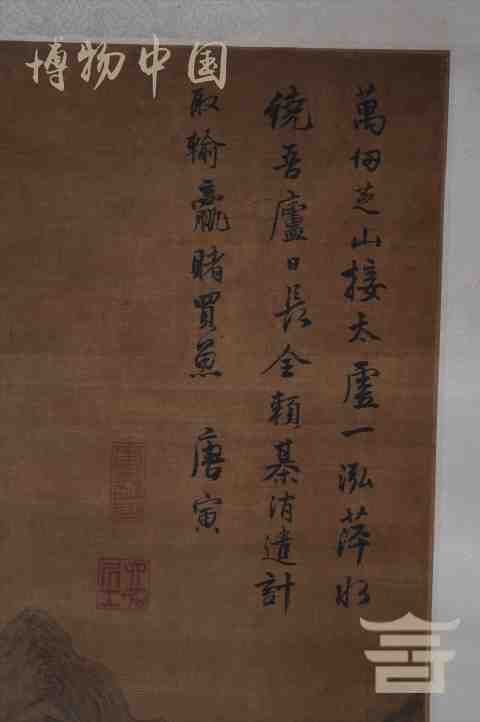 博物中国
萬仞芝山接太虛一泓萍水
繞吾廬日長全賴棊消遣計
取輸贏賭買魚 唐寅